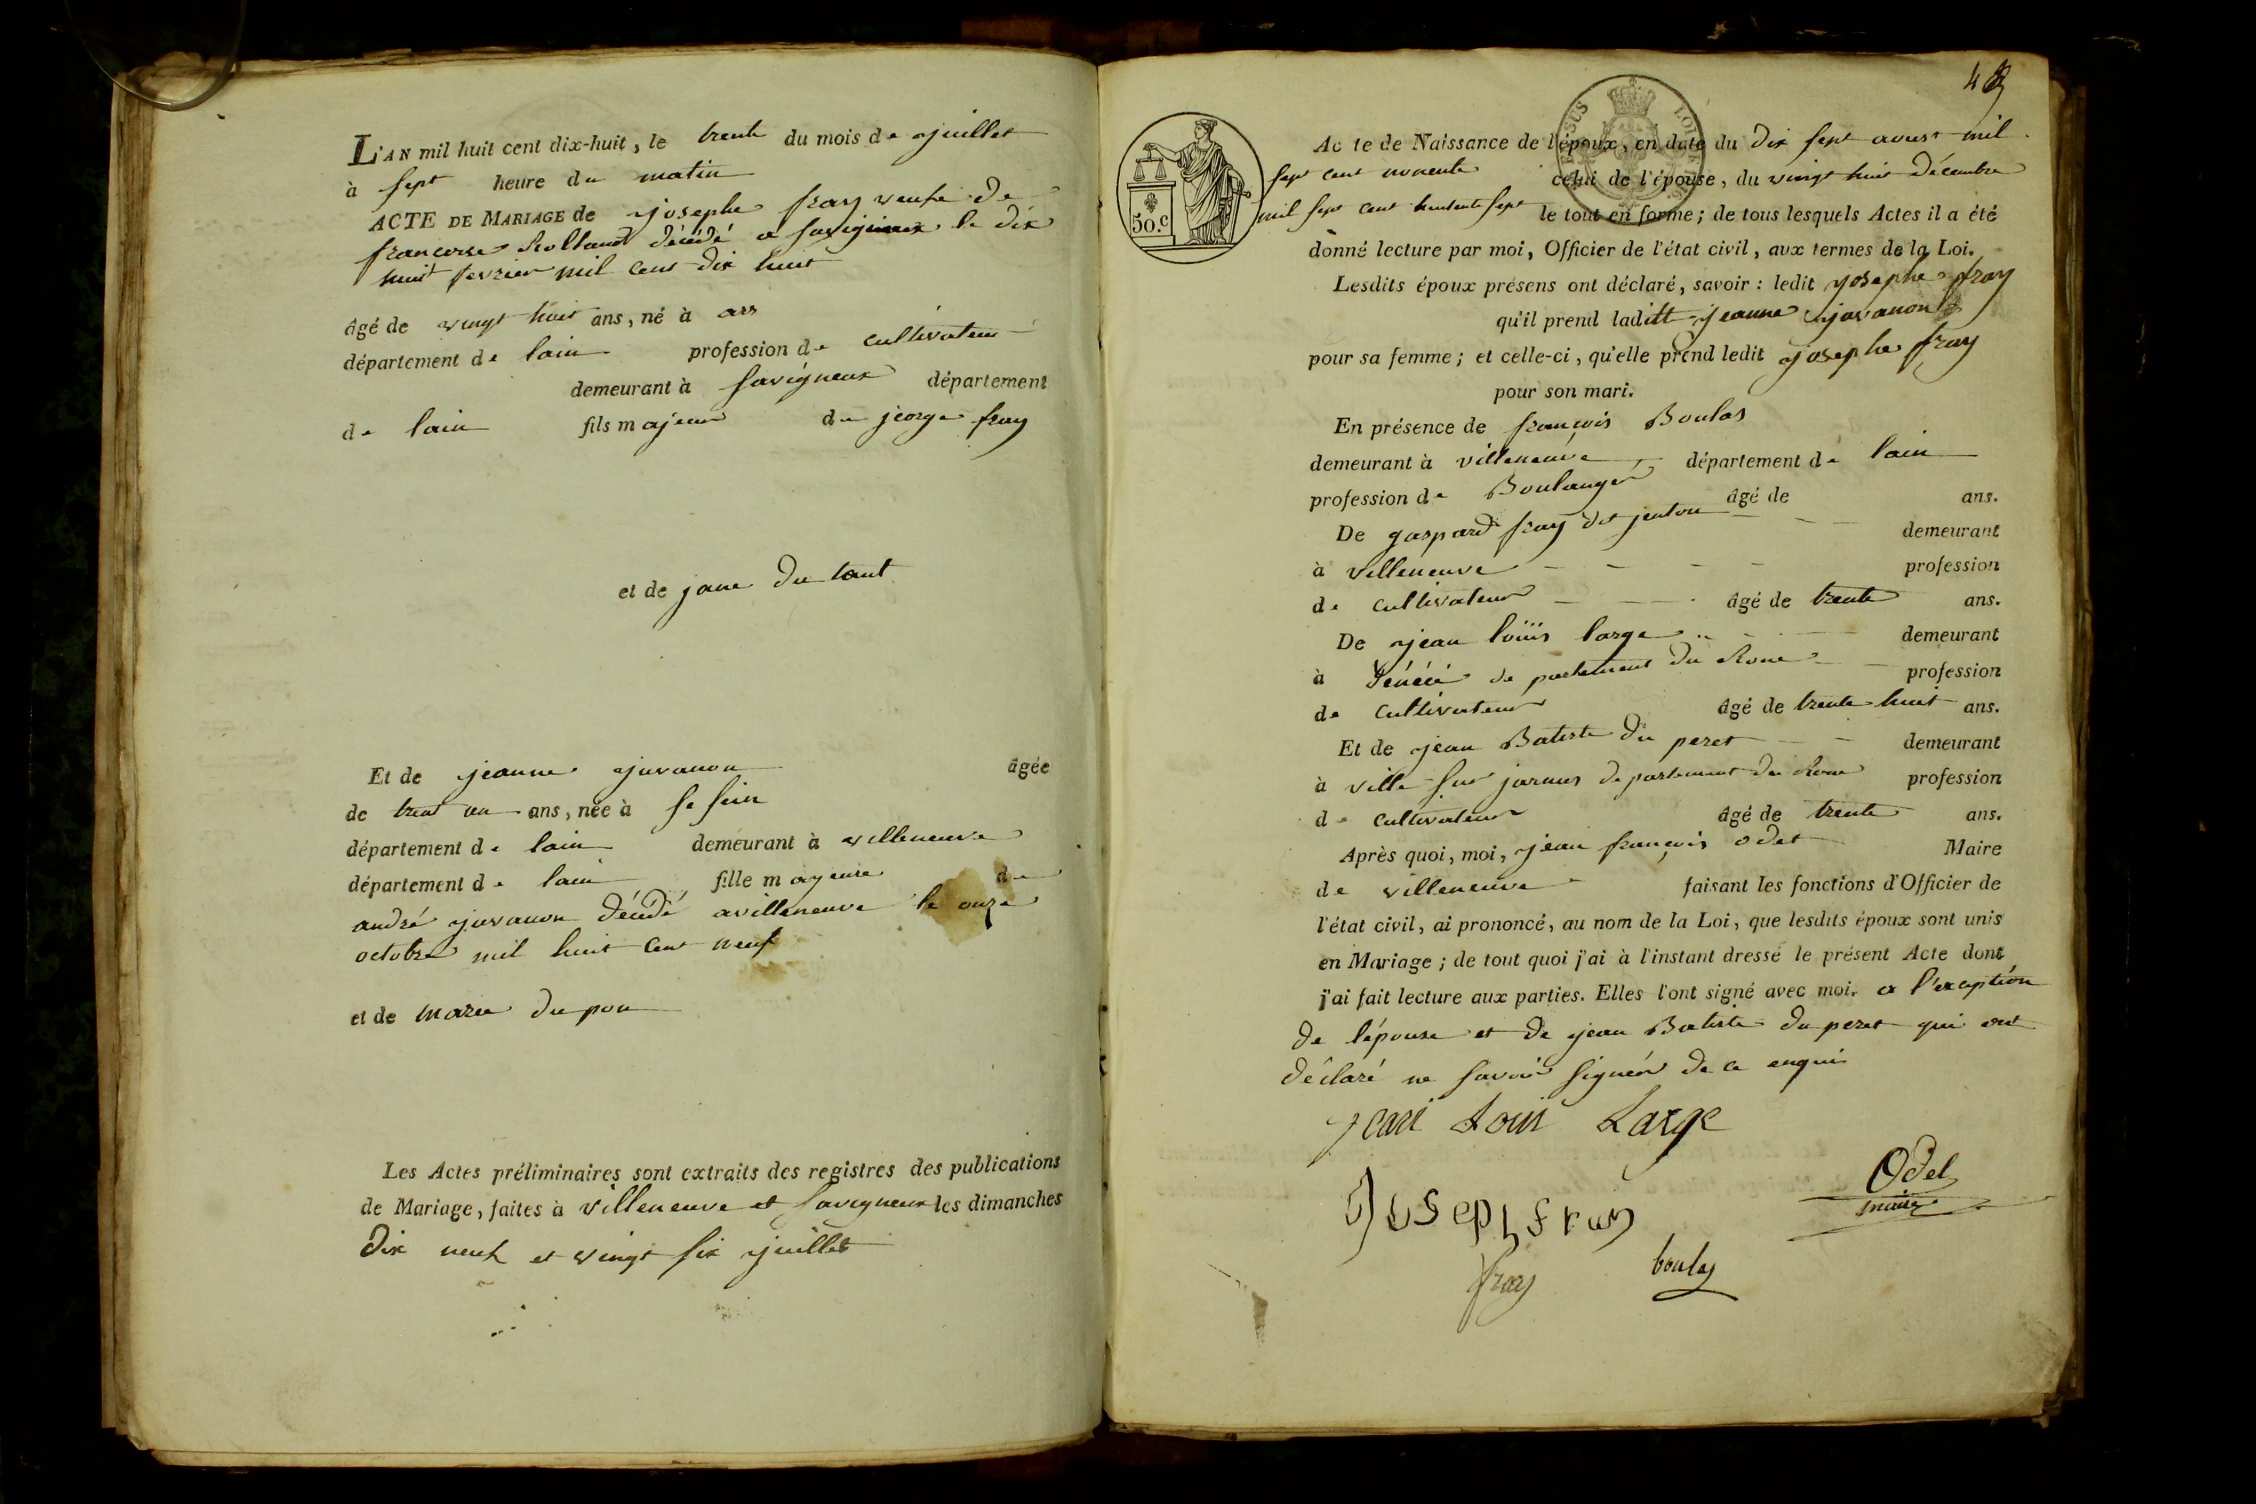 L'AN mil huit cent dix-huit, le trente du mois de juillet
à sept heure du matin
ACTE DE MARIAGE de josephe fray veufe de
francoise Rolland décédé a savigneux le dix
huit fevrier mil cent dix huit
âgé de vingt huit ans, né à ars
département de lain profession de cultivateur
demeurant à savigneux département
de lain fils majeur de jeorge fray
et de jane du tant
Et de jeanne juvanon âgée
de trent un ans, née à
département de lain demeurant à villeneuve
département de lain fille mayeure de
andré juvanon décédé a villeneuve le onze
octobre mil huit cent neuf
et de marie du pon
Les Actes préliminaires sont extraits des registres des publications
de Mariage, faites à villeneuve et savigneux les dimanches
dix neuf et vingt six juillet
48
50.c
Acte de Naissance de l'époux, en date du dix sept aoust mil
sept cent nonente celui de l'épouse, du vingt huit décembre
mil sept cent sept le tout en forme; de tous lesquels Actes il a été
donné lecture par moi, Officier de l'état civil, aux termes de la Loi.
Lesdits époux présens ont déclaré, savoir : ledit josephe fray
qu'il prend laditt jeanne javanon
pour sa femme; et celle-ci, qu'elle prend ledit josephe fray
pour son mari.
En présence de françois Boulas
demeurant à villeneuve département de lain
profession de Boulanger âgé de ans.
De gaspard fray dit jenton demeurant
à villeneuve profession
de cultivateur âgé de trente ans.
De jean loüis large demeurant
à dénécé de partement du Rone profession
de cultivateur âgé de trente huit ans.
Et de jean Batiste du peret demeurant
à ville sur jarnus departement du Rone profession
de cultivateur âgé de trente ans.
Après quoi, moi, jean françois odet Maire
de villeneuve faisant les fonctions d'Officier de
l'état civil, ai prononcé, au nom de la Loi, que lesdits époux sont unis
en Mariage; de tout quoi j'ai à l'instant dressé le présent Acte dont
j'ai fait lecture aux parties. Elles l'ont signé avec moi. a l'exception
de l'épouse et de jean Batiste du peret qui ont
déclaré ne savoir signér de ce enquis
jean Louis Large
Odet
maire
Joseph fray
fray
boulas